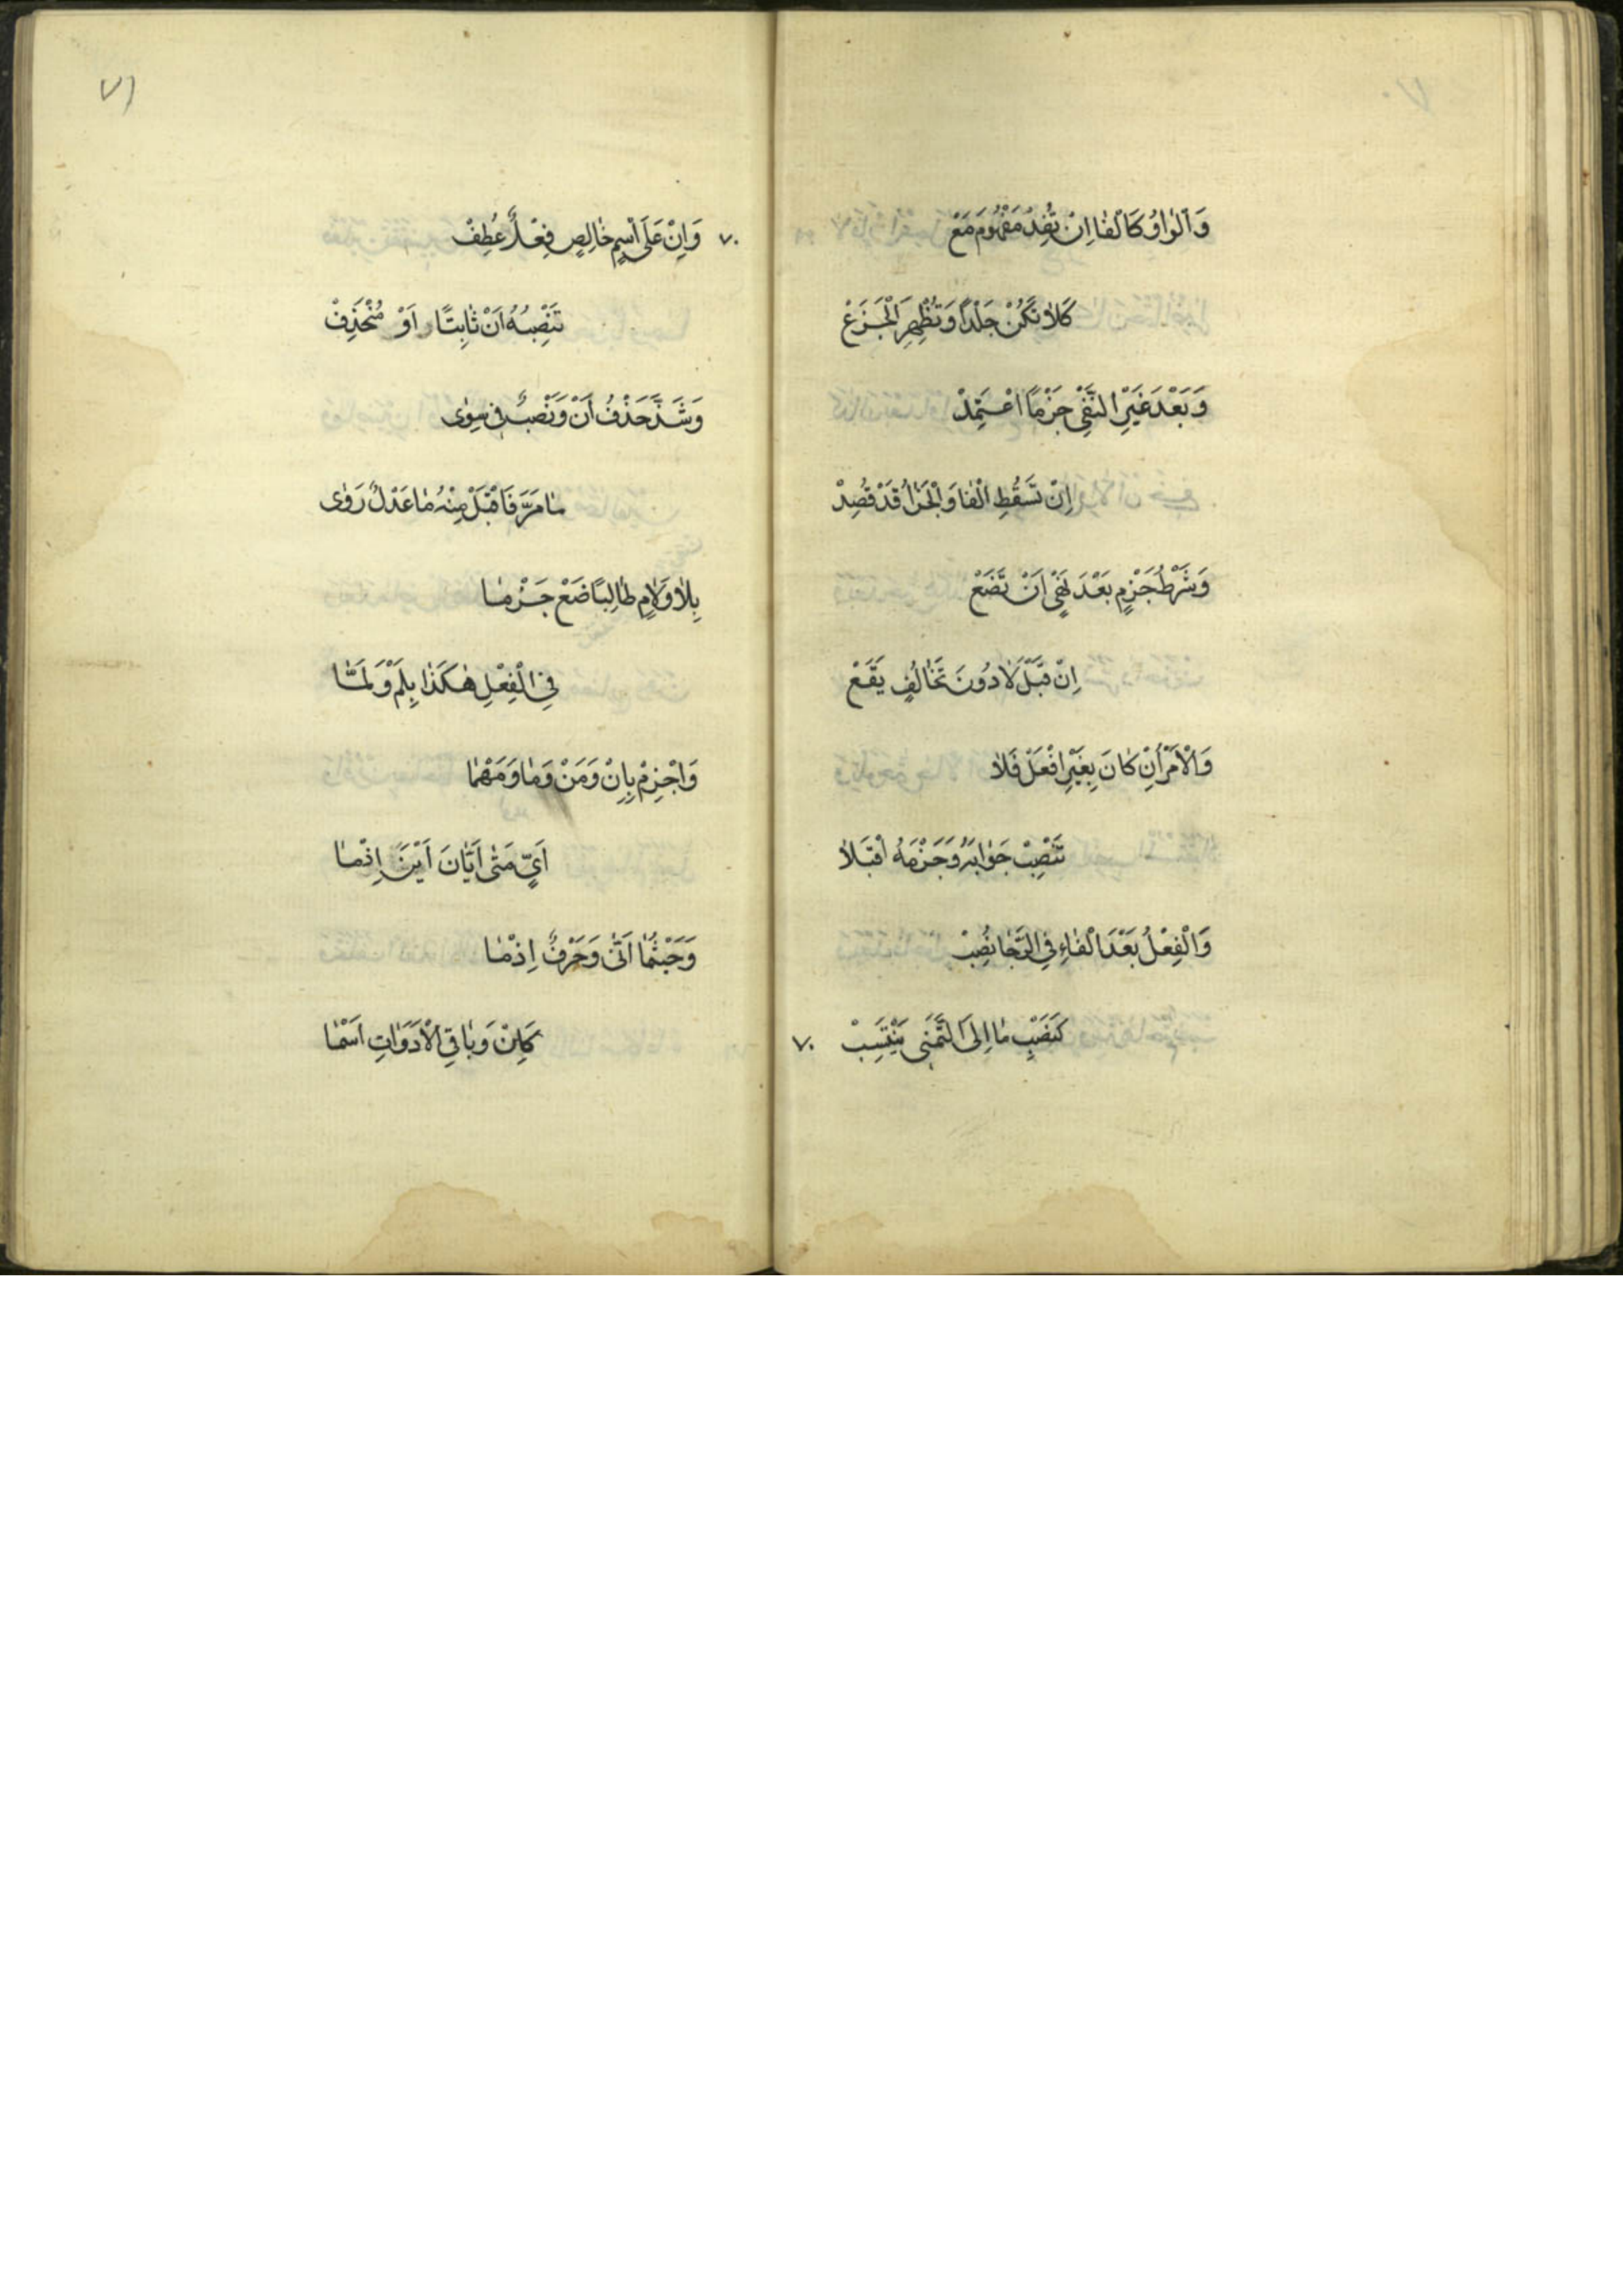 وَالْوَاوُ كَالْفَا اِنْ تُفِدْ مَفْهُومَ مَعْ
كَلاٰ تَكُنْ جَلْدًا وَتُظْهِرَ الْجَزَعْ
وَبَعْدَ غَيْرِ النَّفْىِ جَزْمًا اعْتَمِدْ
اِنْ تَسْقُطِ الْفَا وَالْجَزَاُ قَدْ قُصِدْ
وَشَرْطُ جَزْمٍ بَعْدَ نَهْىٍ اَنْ تَضَعْ
اِنْ قَبْلَ لاٰ دُونَ تَخَالُفٍ يَقَعْ
وَالْاَمْرُ اِنْ كَانَ بِغَيْرِ افْعَلْ فَلاٰ
تَنْصِبْ جَوَابَهُ وَجَزْمَهُ اقْبَلاٰ
وَالْفِعْلُ بَعْدَ الْفَاءِ فِى الرَّجَا نُصِبْ
كَنَصْبِ مَا اِلَى التَّمَنِّى يَنْتَسِبْ
٧٠
٧١
٧٠
وَاِنْ عَلَى اسْمٍ خَالِصٍ فِعْلٌ عُطِفْ
تَنْصِبُهُ اَنْ ثَابِتًا اَوْ مُنْحَذِفْ
وَشَذَّ حَذْفُ اَنْ وَنَصْبٌ فِى سِوٰى
مَا مَرَّ فَاقْبَلْ مِنْهُ مَا عَدْلٌ رَوٰى
بِلاٰ وَلاٰمٍ طَالِبًا ضَعْ جَزْمَا
فِى الْفِعْلِ هٰكَذَا بِلَمْ وَلَمَّا
وَاجْزِمْ بِاِنْ وَمَنْ وَمَا وَمَهْمَا
اَىٍّ مَتٰى اَيَّانَ اَيْنَ اِذْمَا
وَحَيْثُمَا اَنّٰى وَحَرْفٌ اِذْمَا
كَاِنْ وَبَاقِى الْاَدَوَاتِ اَسْمَا